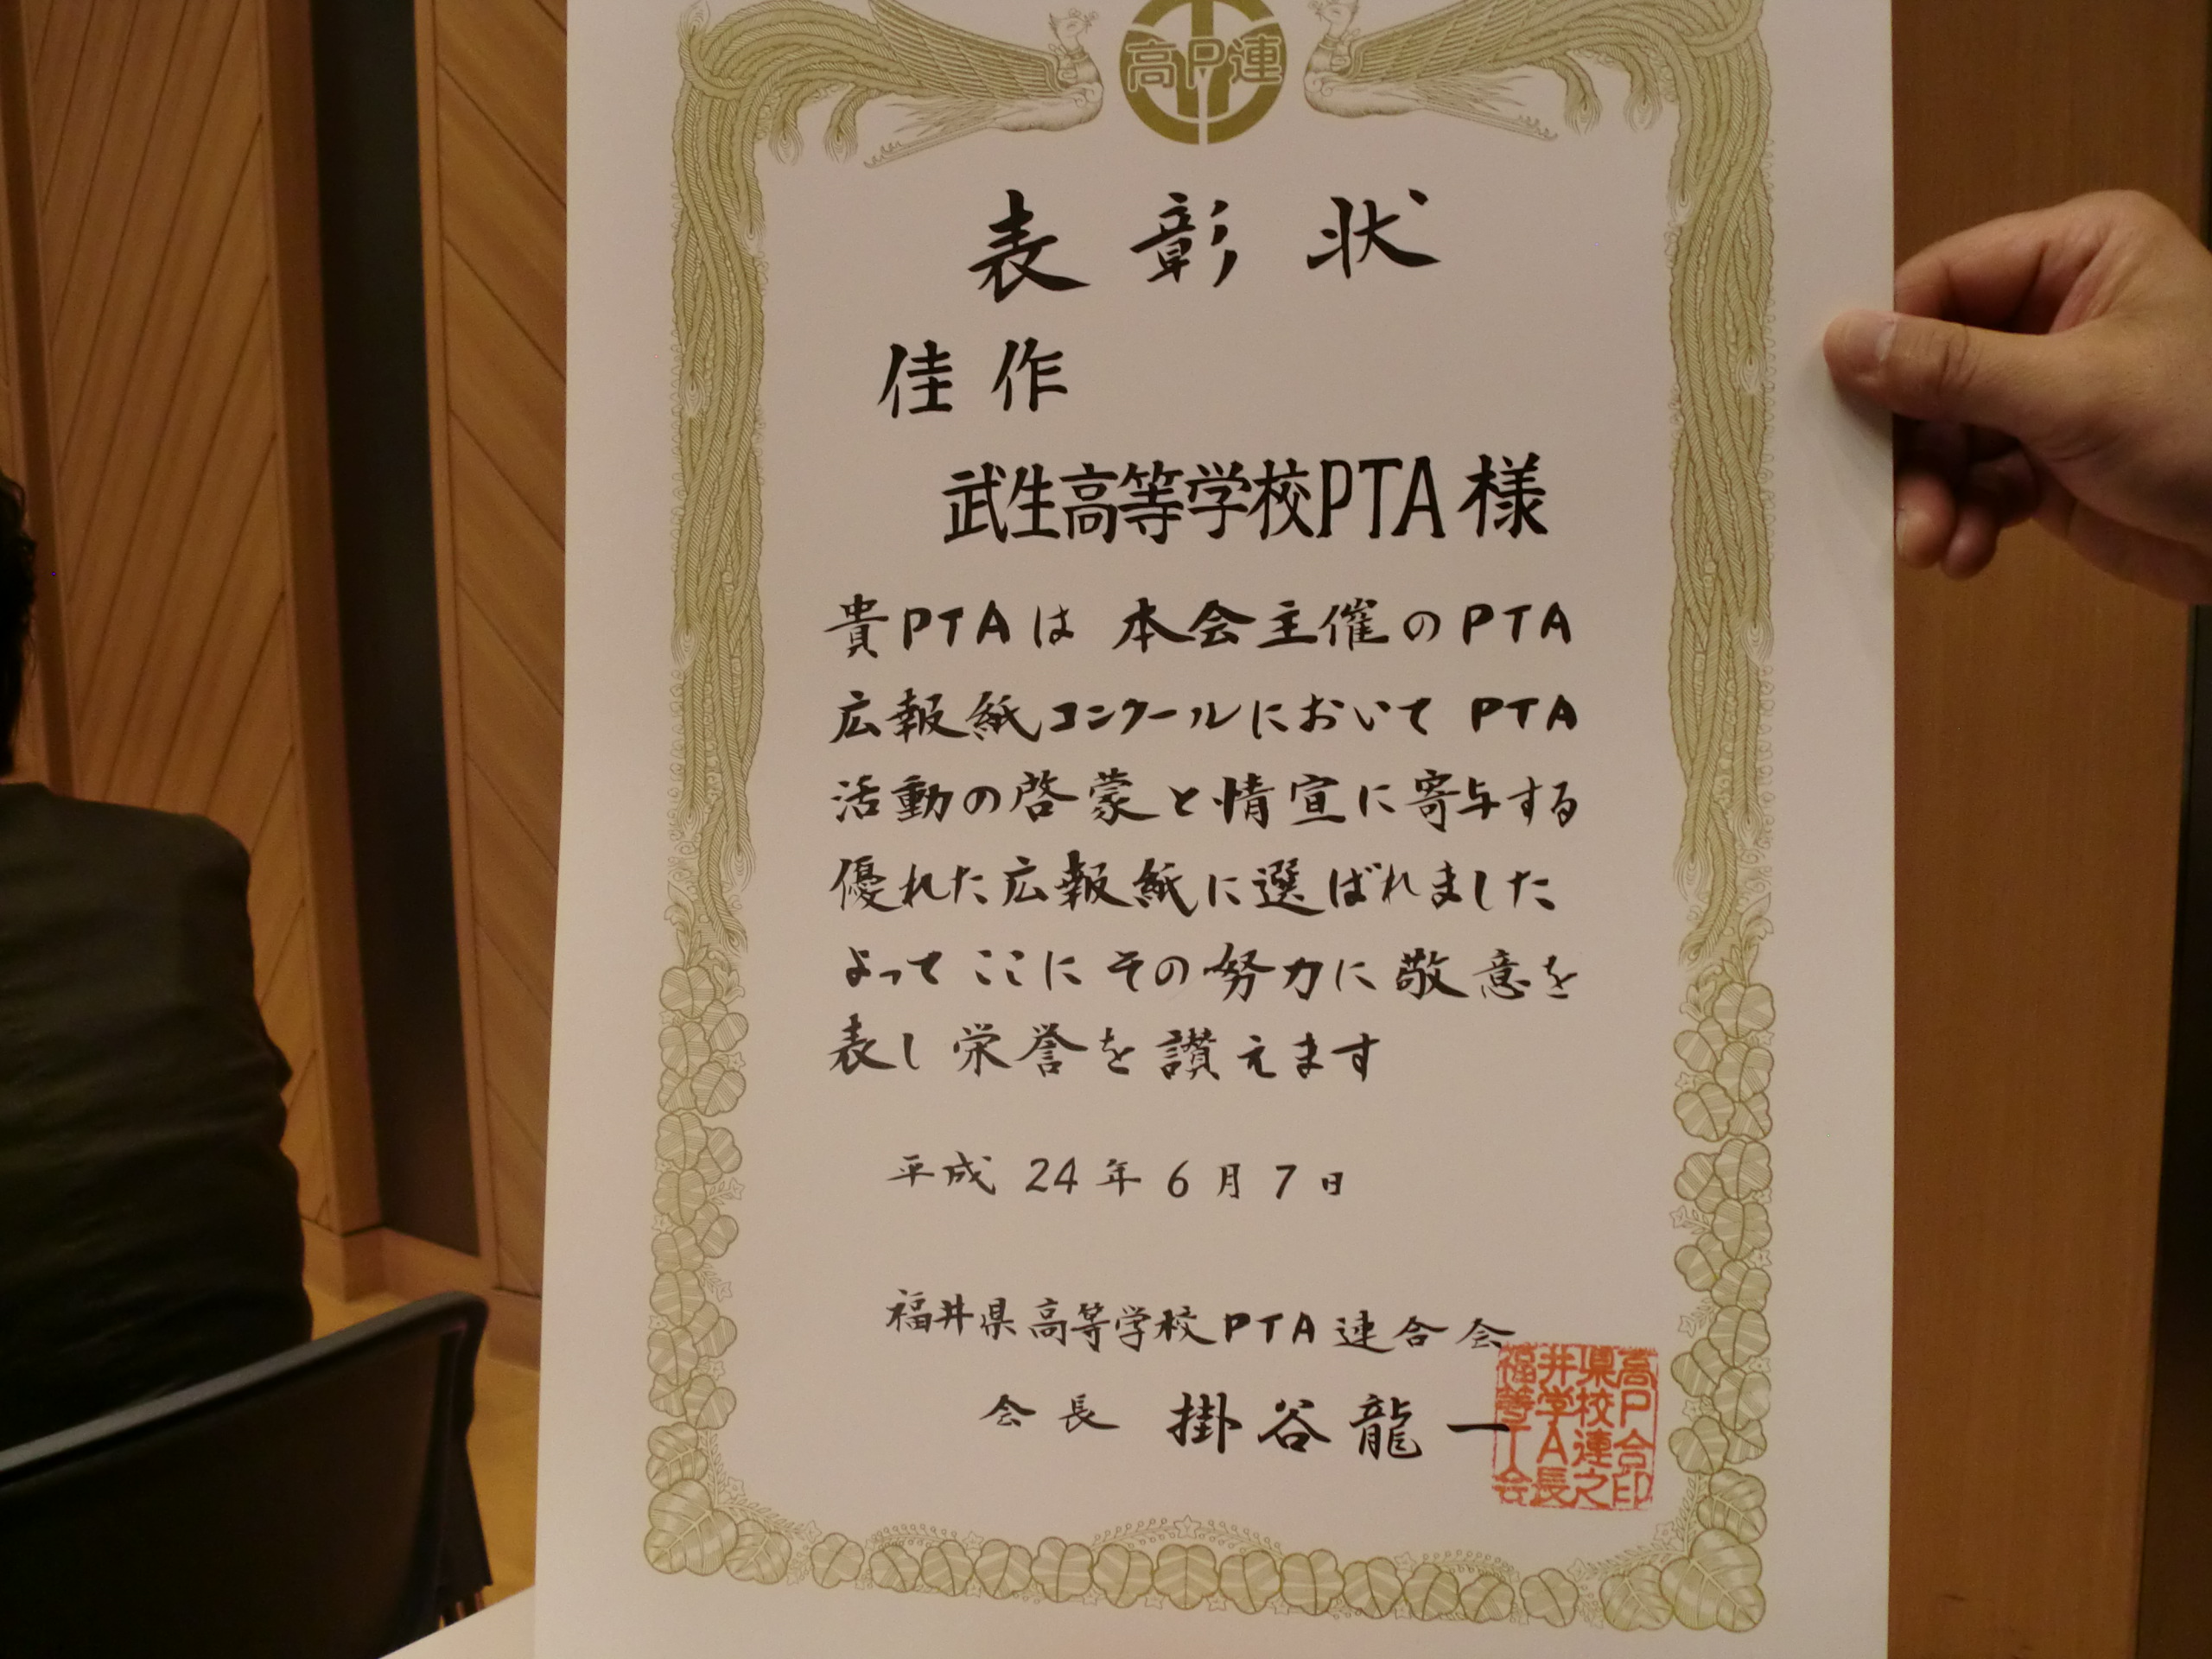 高P連
表彰状
佳作
武生高等学校PTA様
貴PTAは本会主催のPTA
広報紙コンクールにおいてPTA
活動の啓蒙と情宣に寄与する
優れた広報紙に選ばれました
よってここにその努力に敬意を
表し栄誉を讃えます
平成24年6月7日
福井県高等学校PTA連合会
会長 掛谷龍一
福井県高
等学校P
TA連合
会長之印